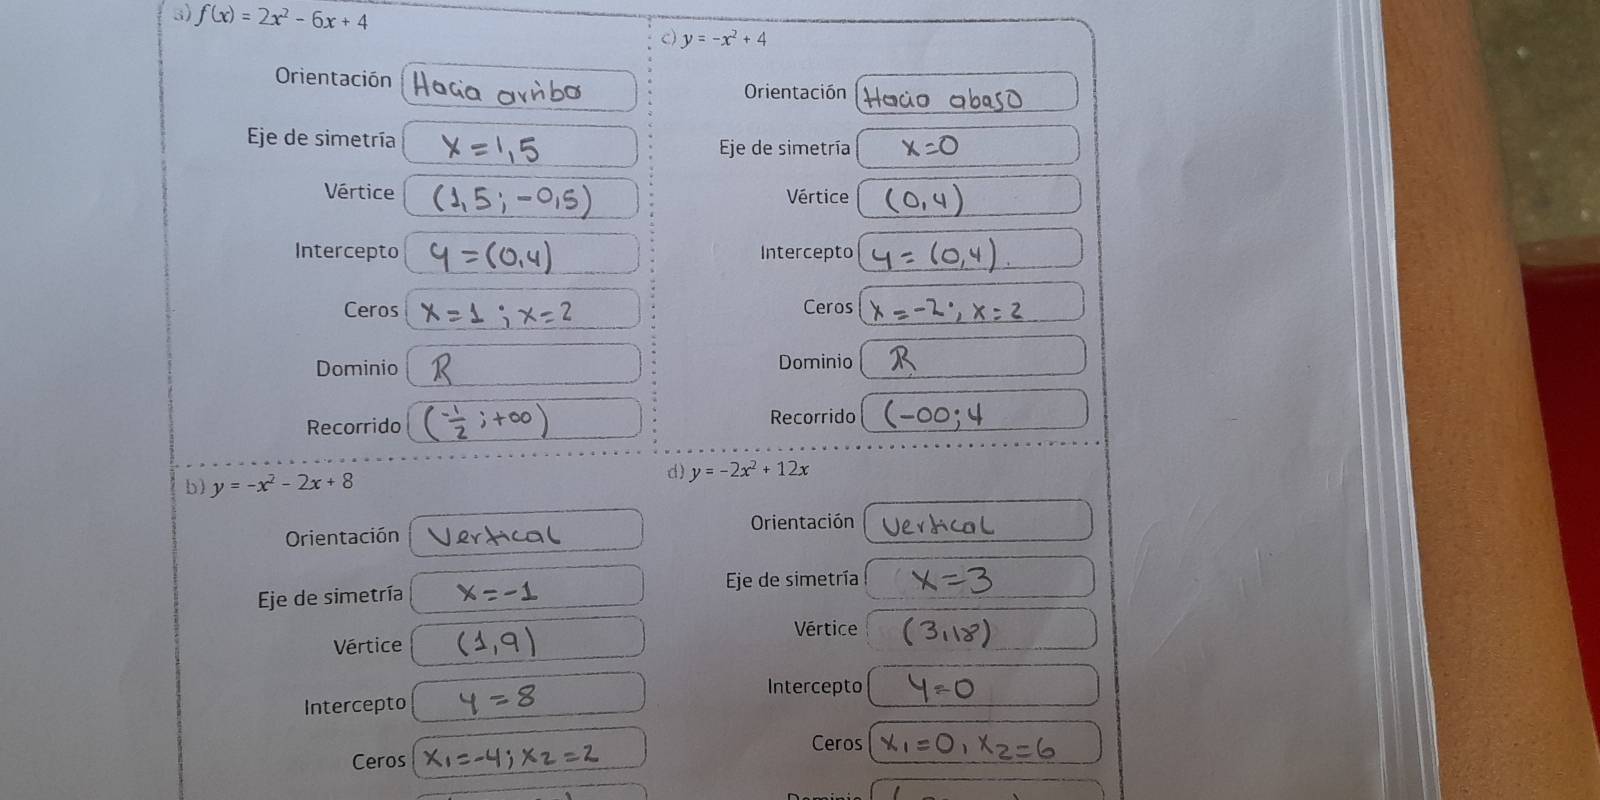 a) f(x) = 2x² - 6x + 4
Orientación Hacia arriba
Eje de simetría x = 1,5
Vértice (1,5; -0,5)
Intercepto y = (0,4)
Ceros x = 1 ; x = 2
Dominio R
Recorrido (-1/2 ; +∞)
c) y = -x² + 4
Orientación Hacia abaso
Eje de simetría x = 0
Vértice (0,4)
Intercepto y = (0,4).
Ceros x = -2 ; x = 2
Dominio R
Recorrido (-∞; 4
b) y = -x² - 2x + 8
Orientación Vertical
Eje de simetría x = -1
Vértice (1,9)
Intercepto y = 8
Ceros x₁ = -4; x₂ = 2
d) y = -2x² + 12x
Orientación Vertical
Eje de simetría x = 3
Vértice (3,18)
Intercepto y = 0
Ceros x₁ = 0, x₂ = 6
Dominio